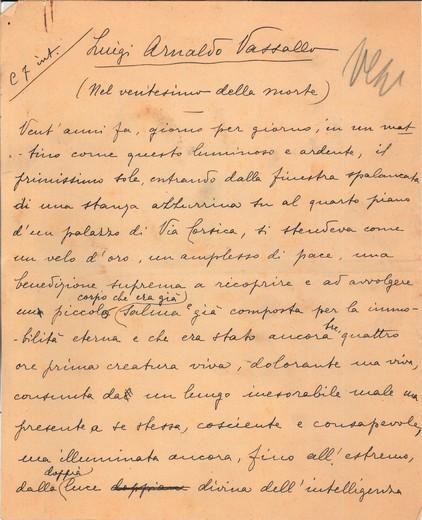 C 7 int.
Luigi Arnaldo Vassallo
(Nel ventesimo della morte)
Vent'anni fa, giorno per giorno, in un mat-
-tino come questo luminoso e ardente, il
primissimo sole, entrando dalla finestra spalancata
di una stanza azzurrina su al quarto piano
d'un palazzo di Via Corsica, si stendeva come
un velo d'oro, un amplesso di pace, una
benedizione suprema a ricoprire e ad avvolgere
corpo che era già
un piccolo (salma già composta per la immo-
-bilità eterna e che era stato ancora tre, quattro
ore prima creatura viva, dolorante ma viva,
consunta da un lungo inesorabile male ma
presente a se stessa, cosciente e consapevole,
ma illuminata ancora, fino all'estremo,
doppia
dalla (luce doppiam divina dell'intelligenza